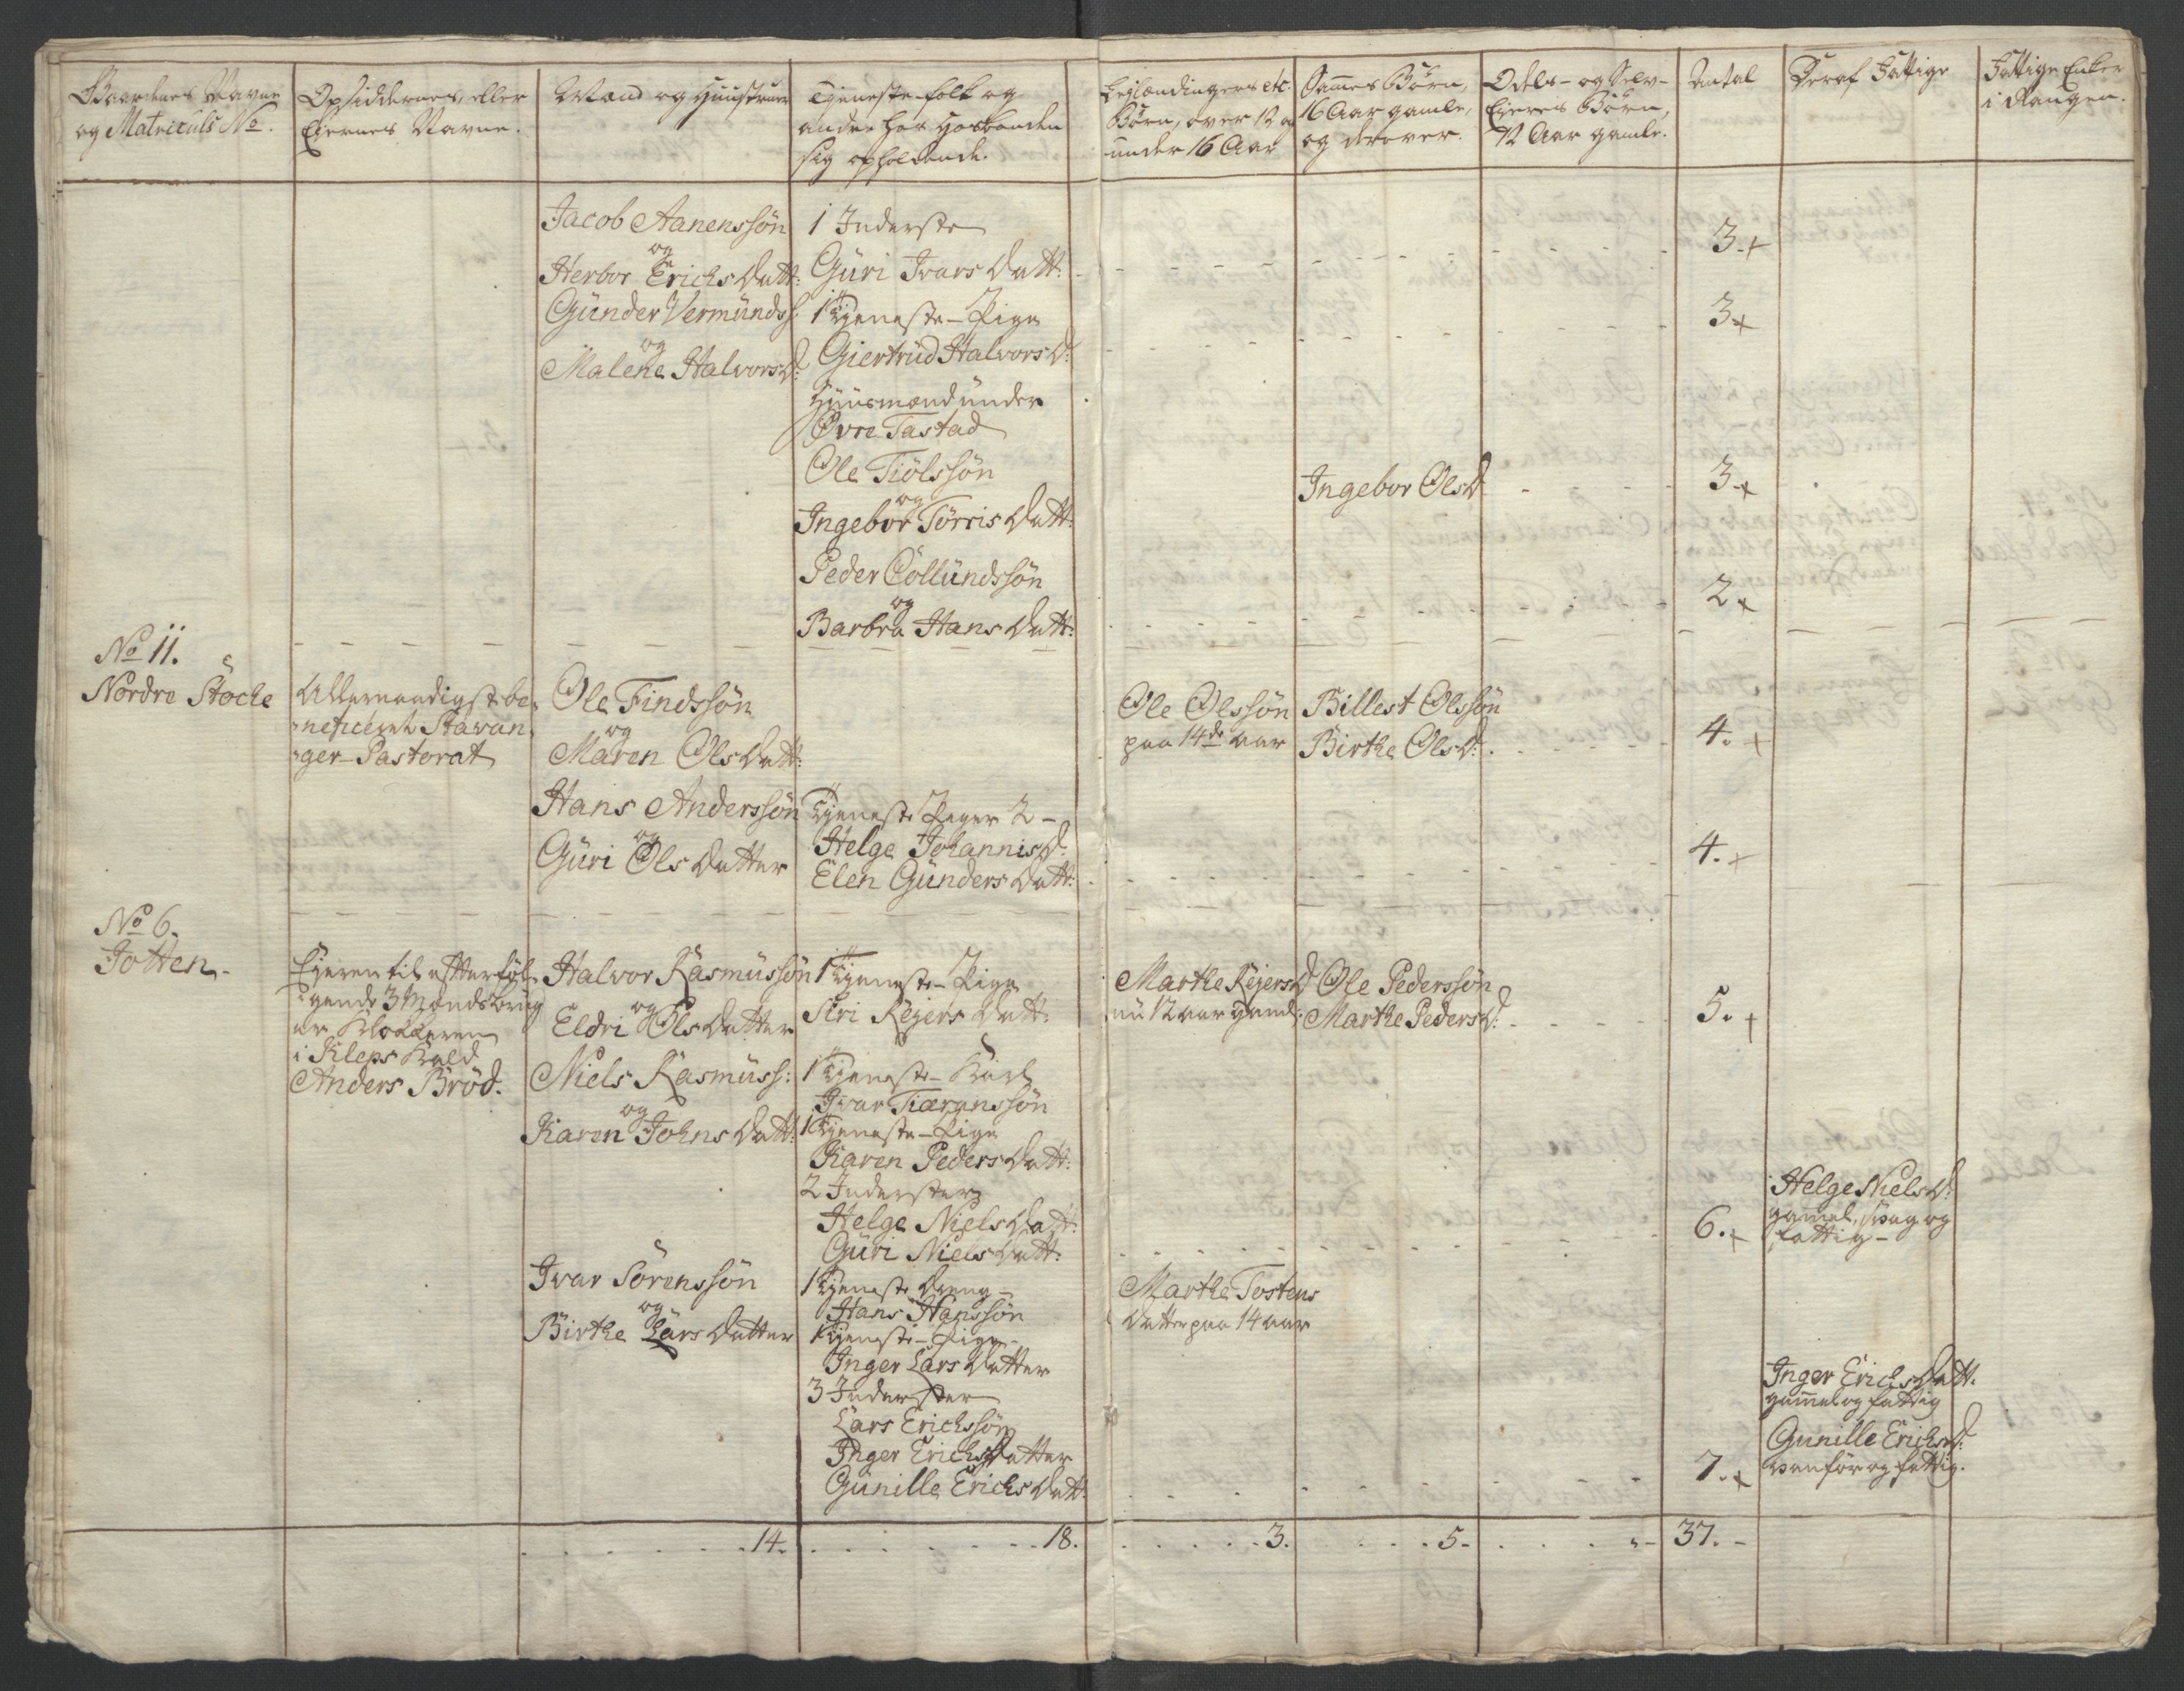 Gaardenes Navne
og Matriculs No.
Opsiddernes, eller
Eiernes Navne.
Mænd og Hustruer
Tjeneste-folk og
andre hos Hosbonden
sig opholdende.
Leylændingers etc.
Børn, over 12 og
under 16 Aar
Sammes Børn,
16 Aar gamle,
og derover.
Odels- og Selv-
Eieres Børn,
12 Aar gamle.
Antal
Deraf Fattige
Fattige Enker
i Rangen.
Jacob Aanenssøn
og
Herbor Erichs Datt:
1 Inderste
Guri Ivars Datt:
3.+
Gunder Vermunds:
og
Malene Halvorsd:
1 Tjeneste-Pige
Giertrud Halvorsd:
3+
Huusmænd under
Øvre Tastad
Ole Tiølssøn
og
Ingebor Tørris Datt:
Ingebor Olsd
3+
Peder Collundssøn
og
Barbra Hans Datt:
2+
No 11.
Nordre Stoche
Allernaadigst be-
neficeret Stavan-
ger-Pastorat
Ole Findssøn
og
Maren Ols Datt:
Ole Olssøn
paa 14de aar
Billest Olssøn
Birthe Olsd:
4.+
Hans Anderssøn
og
Guri Ols Datter
Tjeneste Piger 2-
Helge Johannisd:
Elen Gunders Datt:
4.+
No 6.
Jotten-
Ejeren til efterføl-
gende 3 Mands brug
er Klokkeren
i Kleps Kald
Anders Brød.
Halvor Rasmussøn
og
Eldri Ols Datter
1 Tjeneste-Pige
Siri Rejers Datt:
Marthe Rejersd
nu 12 aar gaml:
Ole Pederssøn
Marthe Pedersd:
5.+
Niels Rasmuss:
og
Karen Johns Datt:
1 Tjeneste-Karl
Ivar Tiæranssøn
1 Tjeneste-Pige
Karen Peders Datt:
2 Inderster
Helge Niels Datt:
Guri Niels Datt:
6.+
Helge Nielsd:
gamel, svag og
fattig-
Ivar Sørenssøn
og
Birthe Lars Datter
1 Tjeneste Dreng-
Hans Hanssøn
1 Tjeneste-Pige-
Inger Lars Datter
3 Inderster
Lars Erichssøn
Inger Erichs Datter
Gunille Erichs Datt:
Marthe Tostens
Datter paa 14 aar
7.+
Inger Erichs Datt:
gammel og fattig
Gunille Erichsd:
vanfør og fattig.
14.
18.
3.
5.
37.-